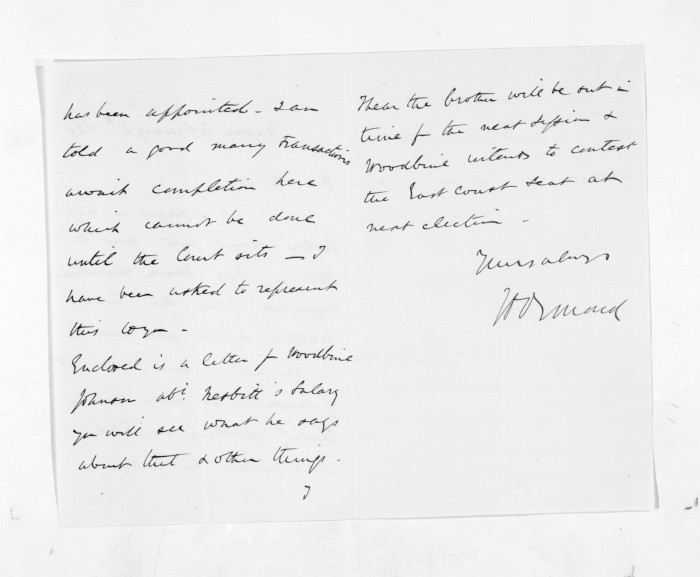 has been appointed - I am
told a good many transactions
await completion here
which cannot be done
until the Court sits - I
have been asked to represent
this to you -
Enclosed is a letter fr Woodbine
Johnson abt. Nesbitt's Salary
you will see what he says
about that & other things -
I
I hear the brother will be out in
time for the next Session &
Woodbine intends to contest
the East Coast Seat at
next election -
Yours always
JD Ormond